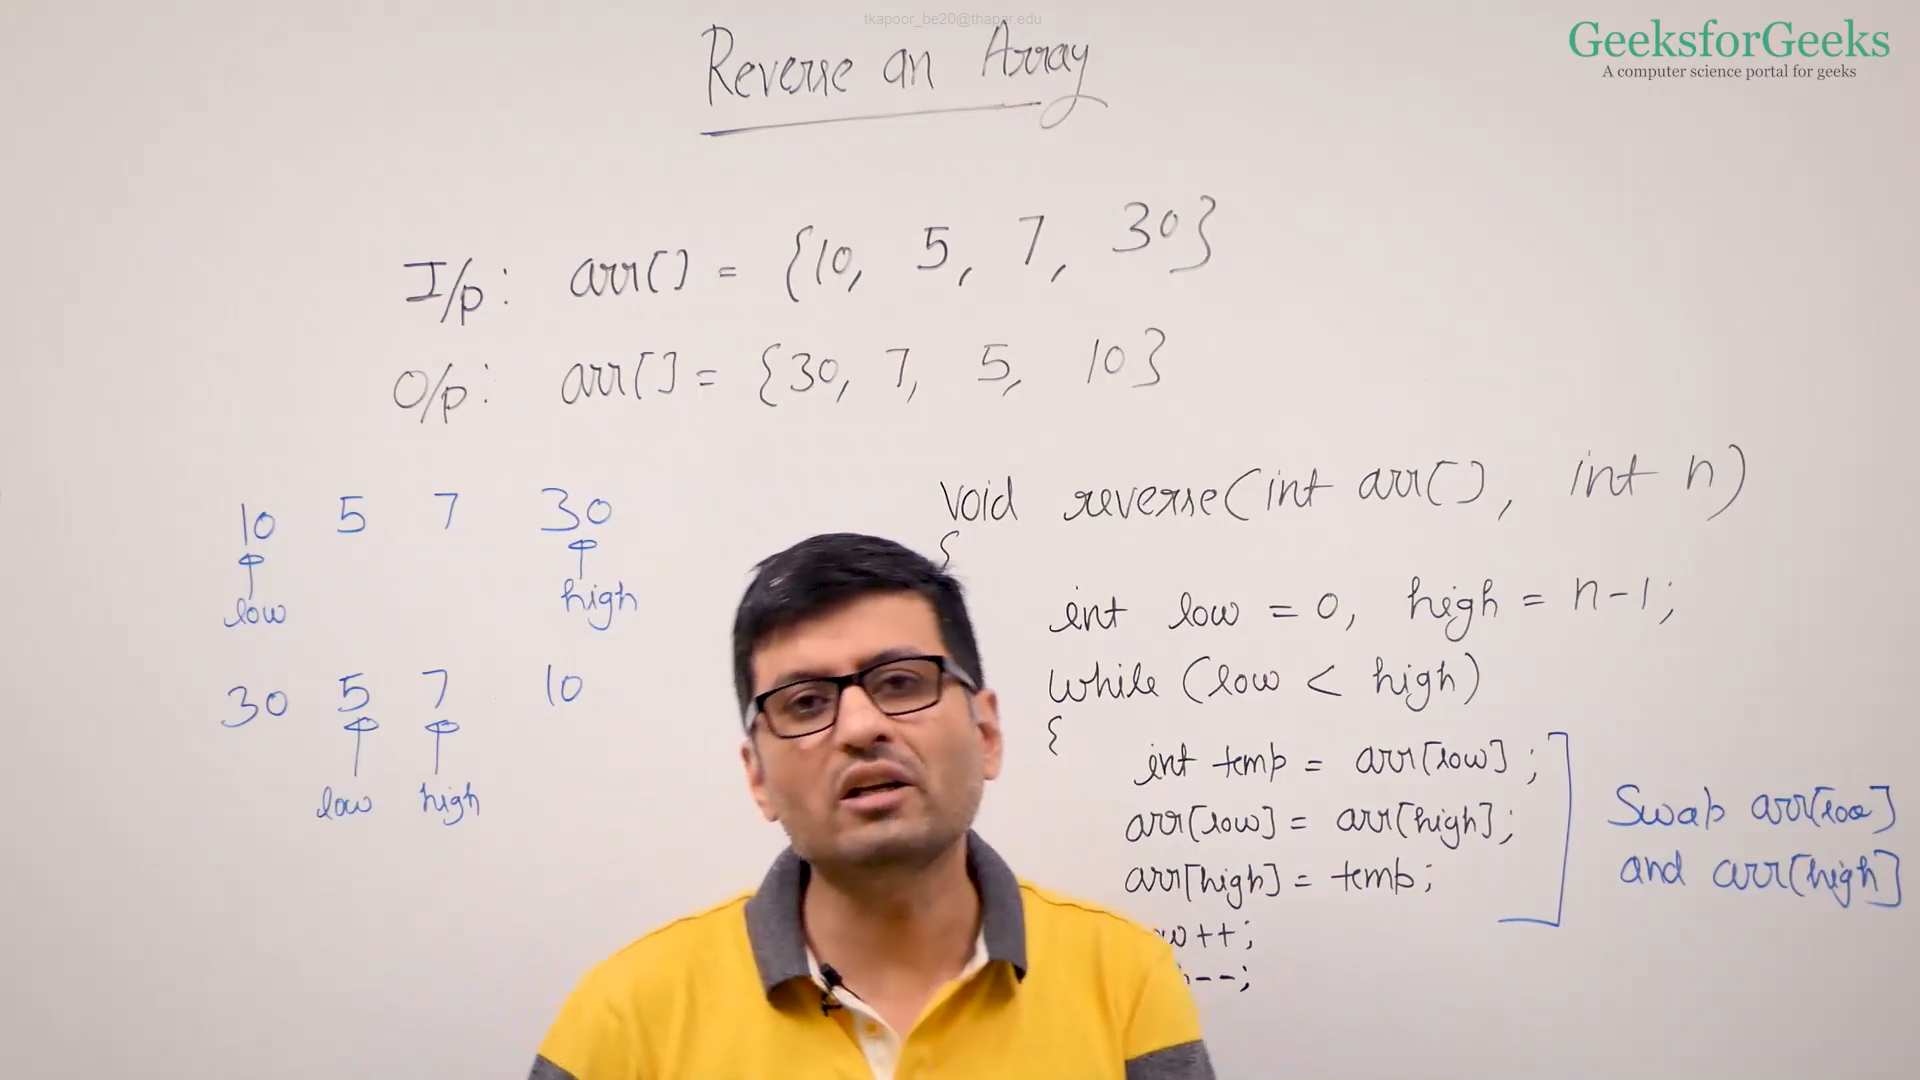 tkapoor_be20@thapar.edu
GeeksforGeeks
A computer science portal for geeks
Reverse an Array
I/p: arr[] = {10, 5, 7, 30}
O/p: arr[] = {30, 7, 5, 10}
10 5 7 30
low high
30 5 7 10
low high
void reverse(int arr[], int n)
{
int low = 0, high = n-1;
while (low < high)
{
int temp = arr[low];
arr[low] = arr[high];
arr[high] = temp;
w++;
h--;
Swap arr[low]
and arr[high]